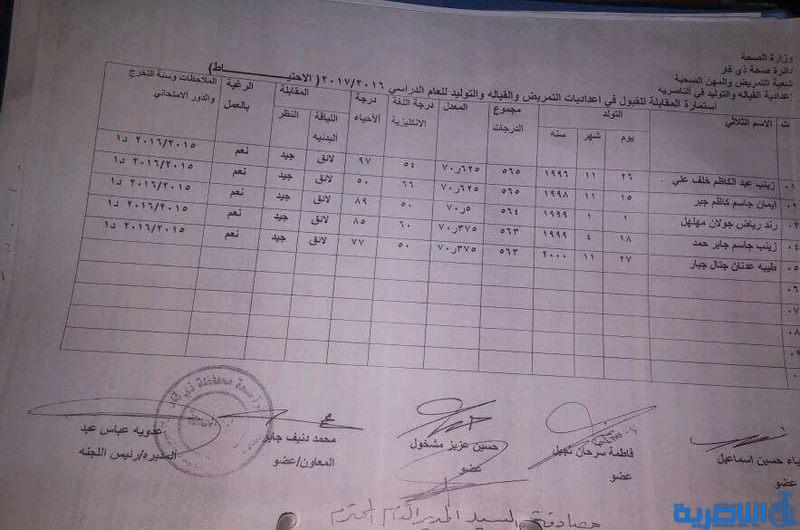 وزارة الصحة
دائرة صحة ذي قار
شعبة التمريض والمهن الصحية
اعدادية القباله والتوليد في الناصريه
استمارة المقابلة للقبول في اعداديات التمريض والقباله والتوليد للعام الدراسي ٢٠١٧/٢٠١٦ ( الاحتيـــاط)
ت الاسم الثلاثي التولد مجموع الدرجات المعدل درجة اللغة الانكليزية درجة الأحياء المقابلة الرغبة بالعمل الملاحظات وسنة التخرج والدور الامتحاني
يوم شهر سنه اللياقة البدنيه النظر
٠١ زينب عبد الكاظم خلف علي ٢٦ ١١ ١٩٩٦ ٥٦٥ ٧٠,٦٢٥ ٥٤ ٩٧ لائق جيد نعم ٢٠١٦/٢٠١٥ د١
٠٢ ايمان جاسم كاظم جبر ١٥ ١١ ١٩٩٨ ٥٦٥ ٧٠,٦٢٥ ٦٦ ٥٠ لائق جيد نعم ٢٠١٦/٢٠١٥ د١
٠٣ رند رياض جولان مهلهل ١ ١ ١٩٩٩ ٥٦٤ ٧٠,٥ ٥٠ ٨٩ لائق جيد نعم ٢٠١٦/٢٠١٥ د١
٠٤ زينب جاسم جابر حمد ١٨ ٤ ١٩٩٩ ٥٦٣ ٧٠,٣٧٥ ٦٠ ٨٥ لائق جيد نعم ٢٠١٦/٢٠١٥ د١
٠٥ طيبه عدنان جتال جبار ٢٧ ١١ ٢٠٠٠ ٥٦٣ ٧٠,٣٧٥ ٥٠ ٧٧ لائق جيد نعم ٢٠١٦/٢٠١٥ د١
٠٦
٠٧
٠٨
٠٩
حسين اسماعيل
عضو
فاطمة سرحان نجيل
عضو
حسين عزيز مشخول
عضو
محمد دنيف جابر
المعاون/عضو
عدويه عباس عبد
المديره/رئيس اللجنه
مصادقة السيد المدير العام المحترم
الناصرية